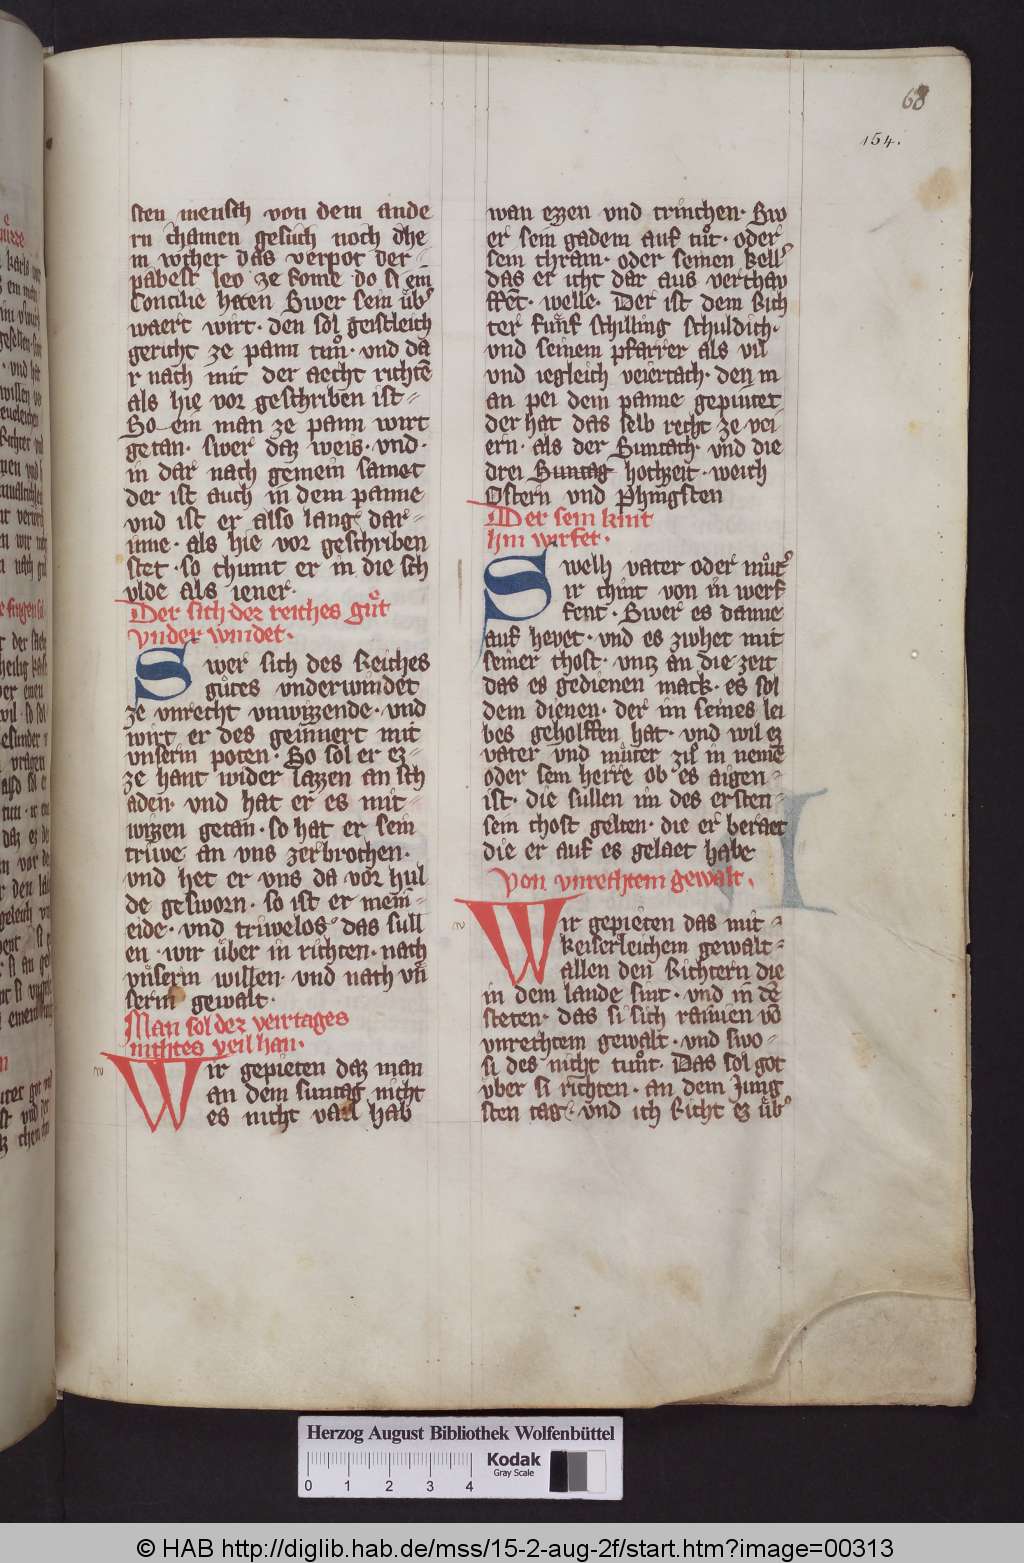 68
154.
sten mensch von dem ande
rn chamen gesuch noch dhe
in wcher das verpot der
pabest leo ze Rome do si ein
Concilie heten Swer sein ub͛
waert wirt · den sol geistleich
gericht ze pann tun · vnd da
r nach mit der aecht richtē
als hie vor geschriben ist
So ein man ze pann wirt
getan · swer daz weis · vnd ·
in dar nach gemein samet
der ist auch in dem panne
vnd ist er also lang dar
inne · als hie vor geschriben
stet · so chumt er in die sch
ulde als iener ·
Der sich dez reiches guͦt
vnder windet ·
Swer sich des Reiches
gutes vnderwindet
ze vnrecht vnwizzende · vnd
wirt er des geinnert mit
vnserm poten · So sol er ez
ze hant wider lazzen an sch
aden · vnd hat er es mit
wizzen getan · so hat er sein
truwe an vns zerbrochen ·
vnd het er vns da vor hul
de gesworn · so ist er mein
eide · vnd truwelos das sull
en · wir über in richten · nach
vnserm willen · vnd nach vn
serm gewalt ·
Man sol dez veirtages
nichtes veil han ·
Wir gepieten daz man
an dem suntag nicht
es nicht vail hab
wan ezzen vnd trinchen · Sw
er sein gadem auf tuͦt · oder
sein chram · oder seinen kell͛
das er icht dar aus verchau
ffet · welle · Der ist dem Rich
ter funf schilling schuldich ·
vnd seinem pfarrer als vil
vnd iegleich veiertach · den m
an pei dem panne gepiutet
der hat das selb recht ze vei
ern · als der Suntach · vnd die
drei Suntag hochzeit · weich
Ostern vnd Phingsten
Der sein kint
hin wirfet ·
Swelh vater oder muͦt͛
ir chint von in werf
fent · Swer es danne
auf hevet · vnd es ziuhet mit
seiner chost · vntz an die zeit
das es gedienen mack · es sol
dem dienen · der im seines lei
bes geholffen hat · vnd wil ez
vater vnd muter zu in nemē
oder sein herre ob · es aigen
ist · die sullen im des ersten
sein chost gelten · die er beraet
die er auf es gelaet habe
Von vnrechtem gewalt ·
Wir gepieten das mit
keiserleichem gewalt
allen den Richtern die
in dem lande sint · vnd in dē
steten · das si sich rainen vō
vnrechtem gewalt · vnd swo
si des nicht tunt · Das sol got
vber si richten · an dem Jung
sten tag · vnd ich Richt ez ub͛
Herzog August Bibliothek Wolfenbüttel
Kodak
Gray Scale
0 1 2 3 4
© HAB http://diglib.hab.de/mss/15-2-aug-2f/start.htm?image=00313